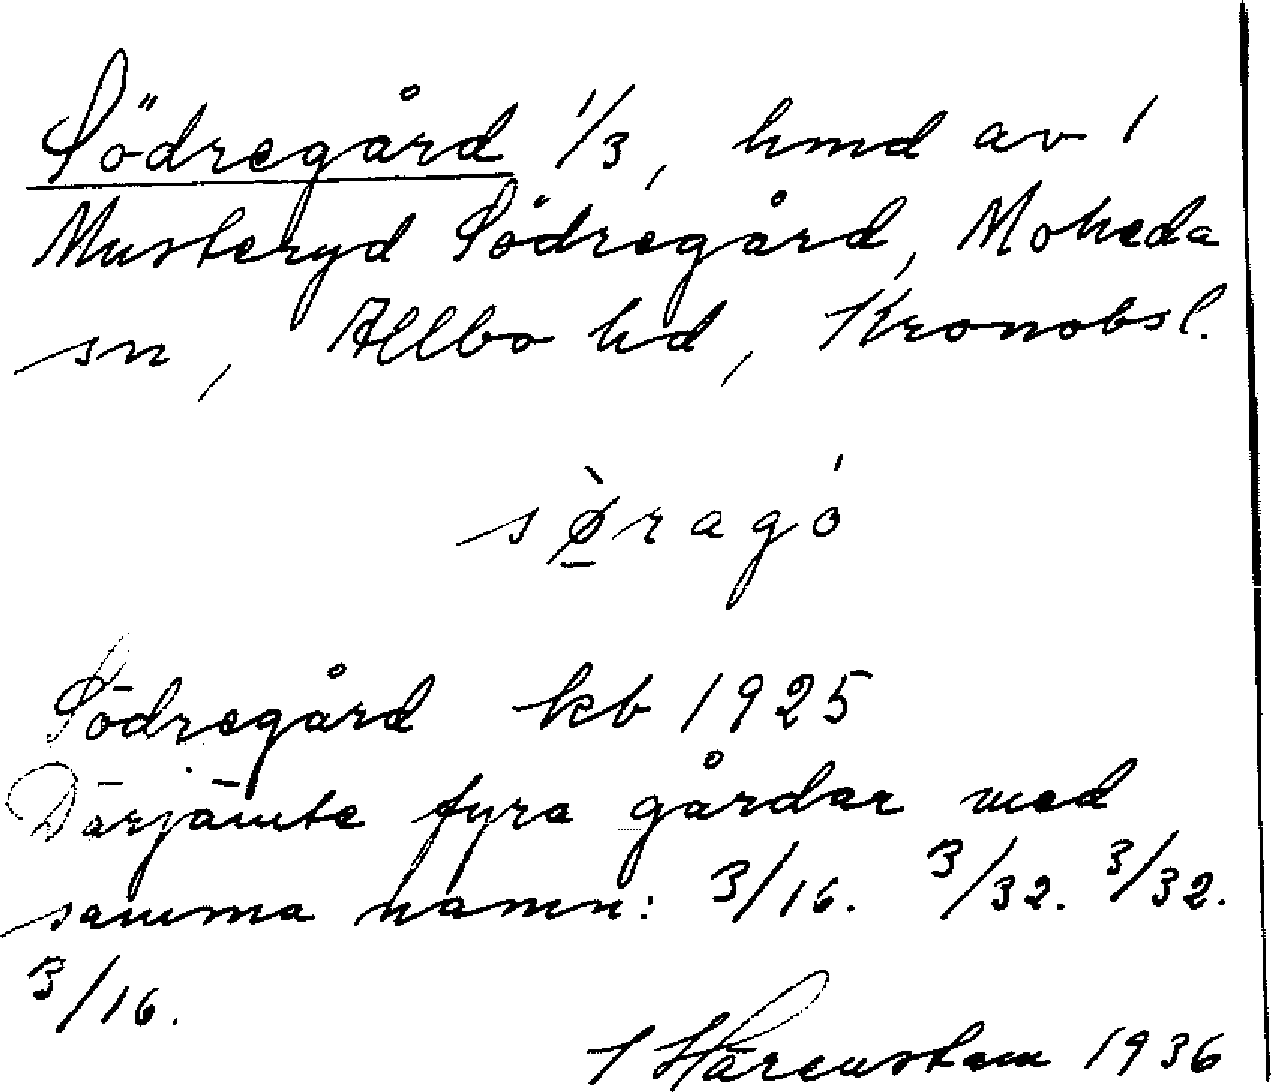 Södregård 1/3, hmd av 1
Musteryd Södregård, Moheda
sn, Allbo hd, Kronobsl.
sø̀ragó
Södregård kb 1925
Därjämte fyra gårdar med
samma namn: 3/16. 3/32. 3/32.
3/16.
I Härenstam 1936